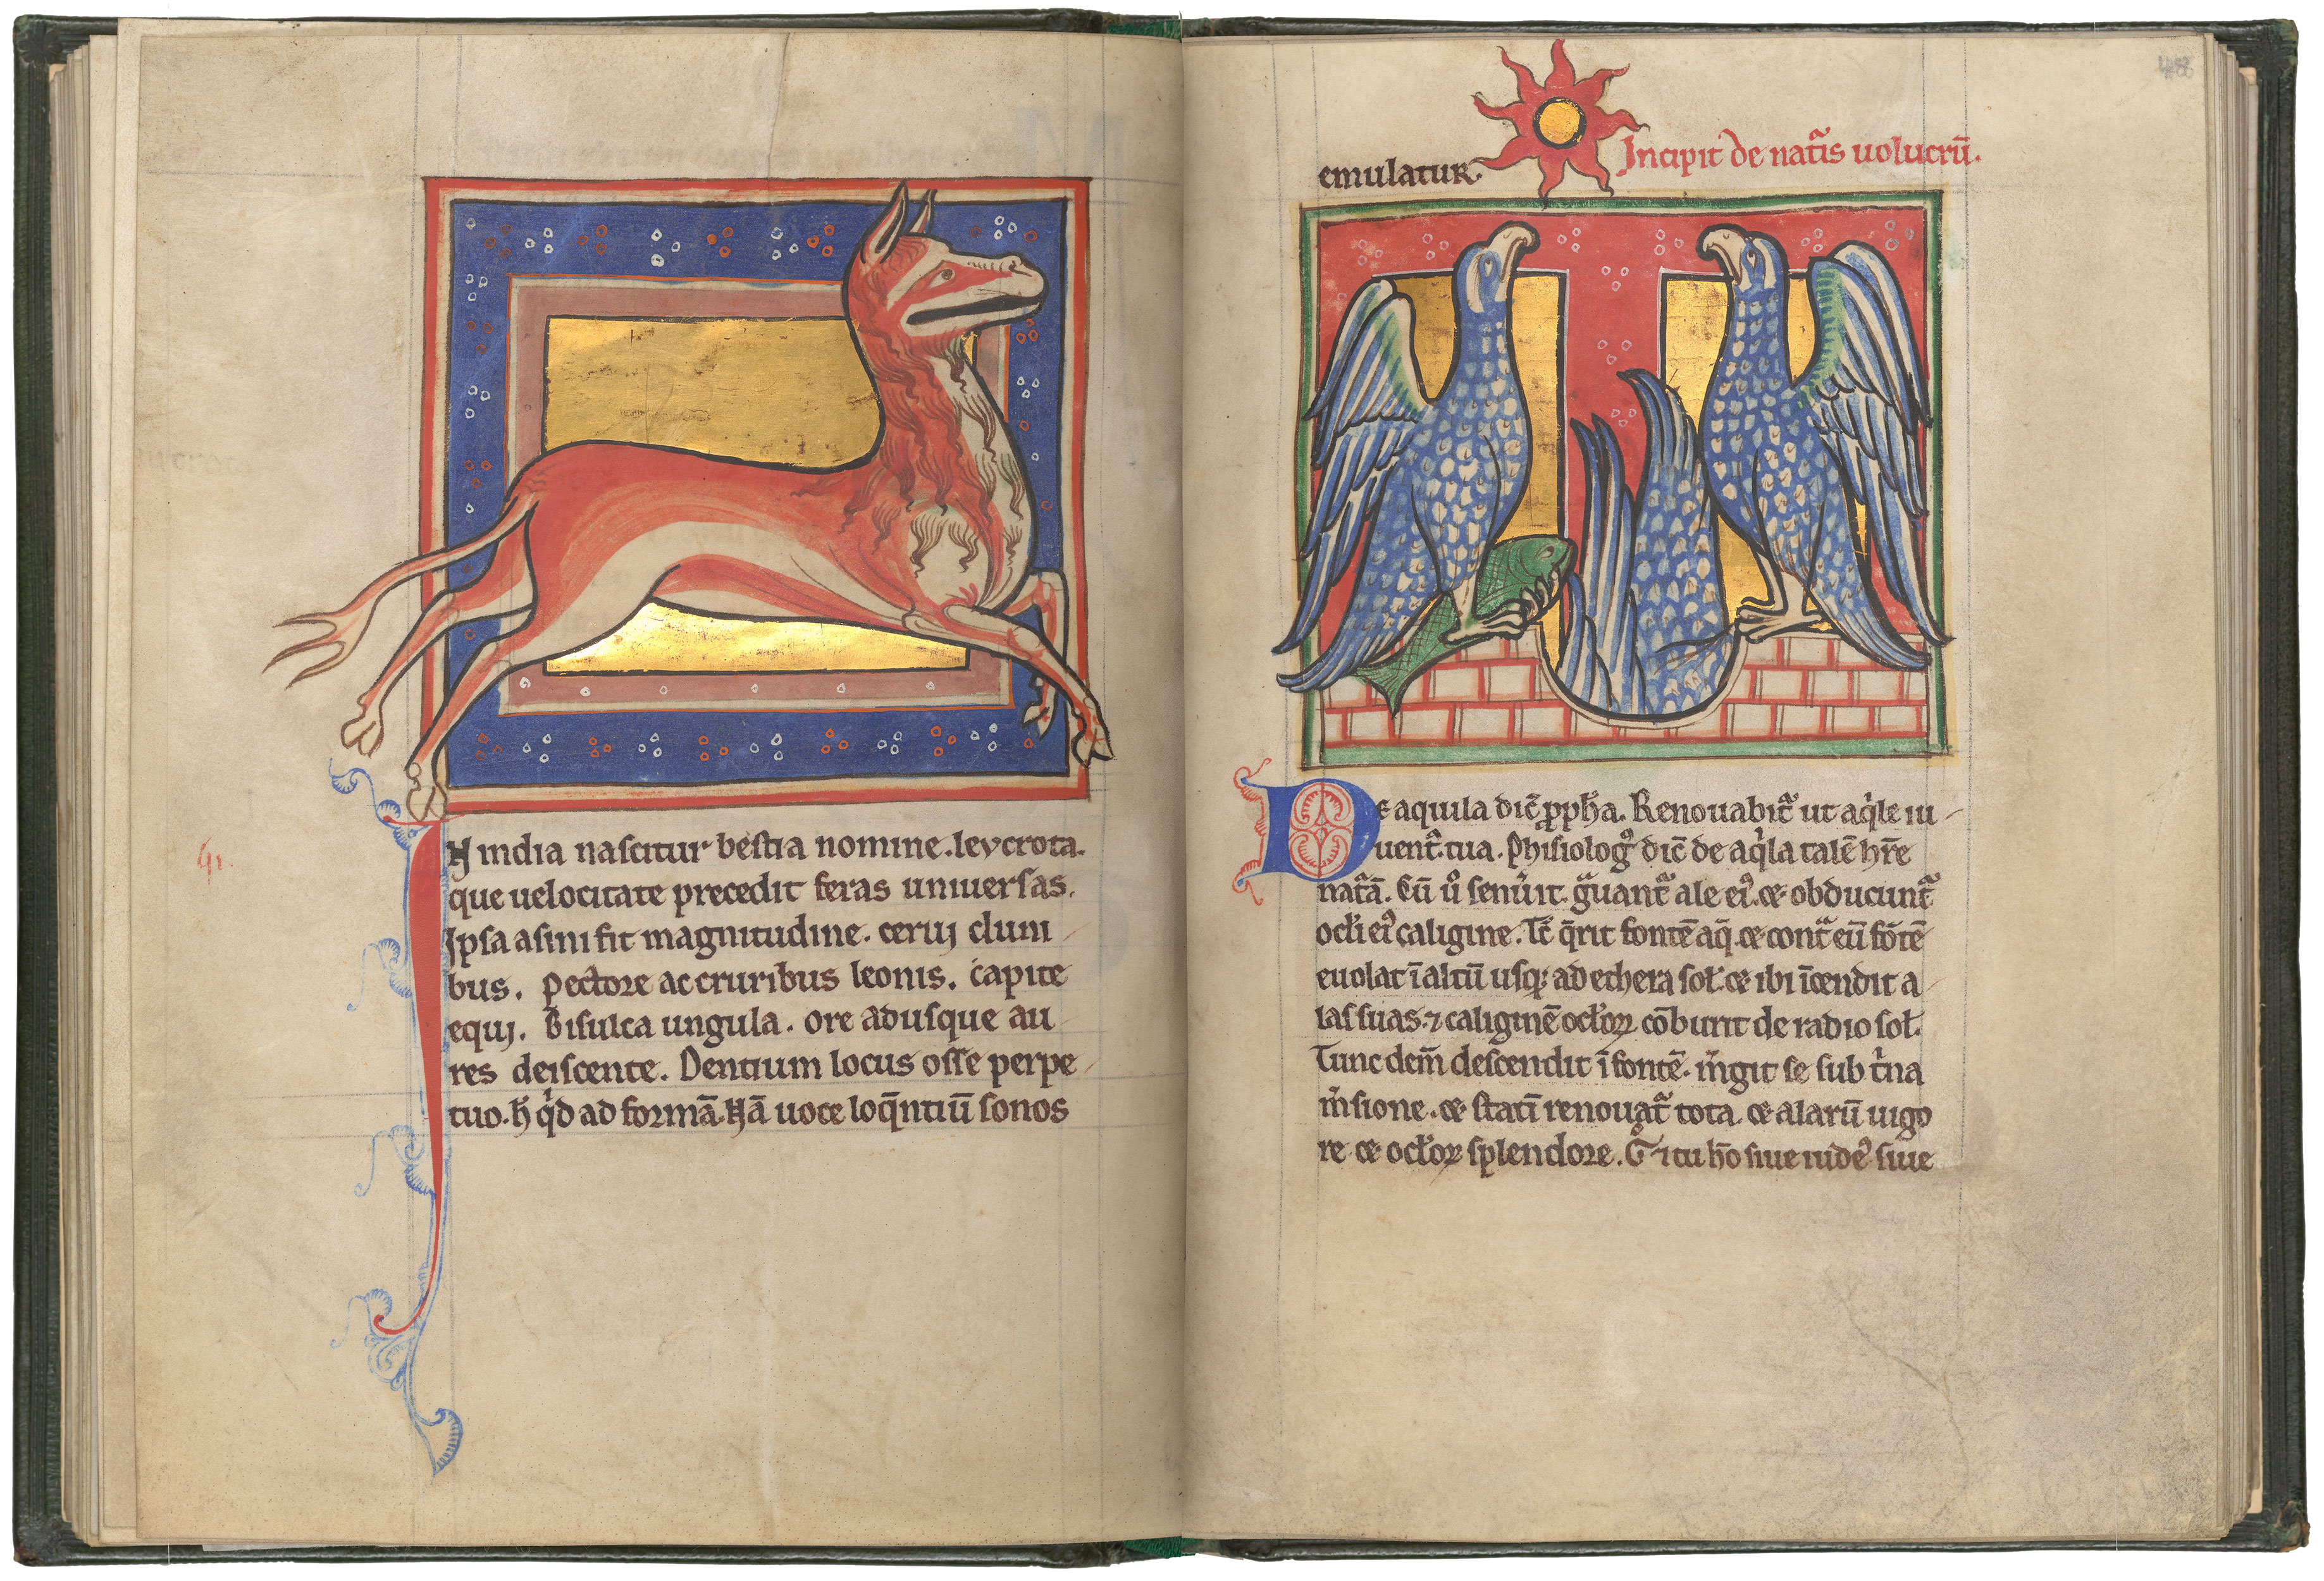 IN india nascitur bestia nomine .leycrota.
que uelocitate precedit feras uniuersas.
Ipsa asini fit magnitudine. cerui cluni
bus. pectore ac cruribus leonis. capite
equi. Bisulca ungula. ore adusque au
res deiscente. Dentium locus osse perpe
tuo. h̄ qͥd ad formā. Nā uoce loq̄ntiū sonos
emulatur.
Incipit de natͣis uolucrū.
De aquila dic̄ ꝓph̄a. Renouabitͬ ut aqͥle iu
uentͬ. tua. Phisiologꝰ dic̄ de aqͥla talē hr̄e
natͣā. Cū uͦ senuͥit. gͣuantͬ ale eiꝰ. ce obducuntͬ
ocl̄i eiꝰ caligine. Tc̄ q̄rit fontē aq̄. ce contͣ eū fōtē
euolat ī altū usqꝫ ad ethera sol̄. ce ibi īcendit a
las suas. ⁊ caliginē ocl̄oꝝ cōburit de radio sol̄.
Tunc dem̄ descendit ī fontē. mͥgit se sub tͥna
mͥsione. ce statī renouatͬ tota. ce alarū uigo
re ce ocl̄oꝝ splendore. Gͦ ⁊ tu hō siue iudeꝰ siue